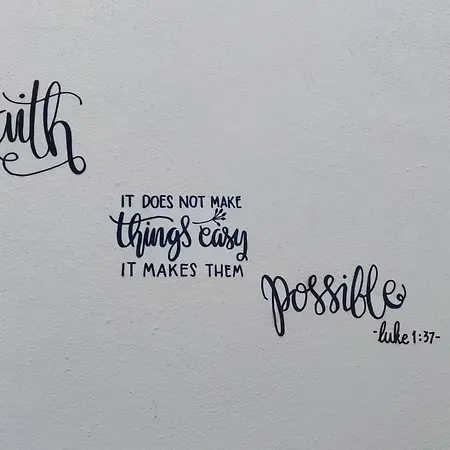 aith
IT DOES NOT MAKE
things easy
IT MAKES THEM
possible
-luke 1:37-